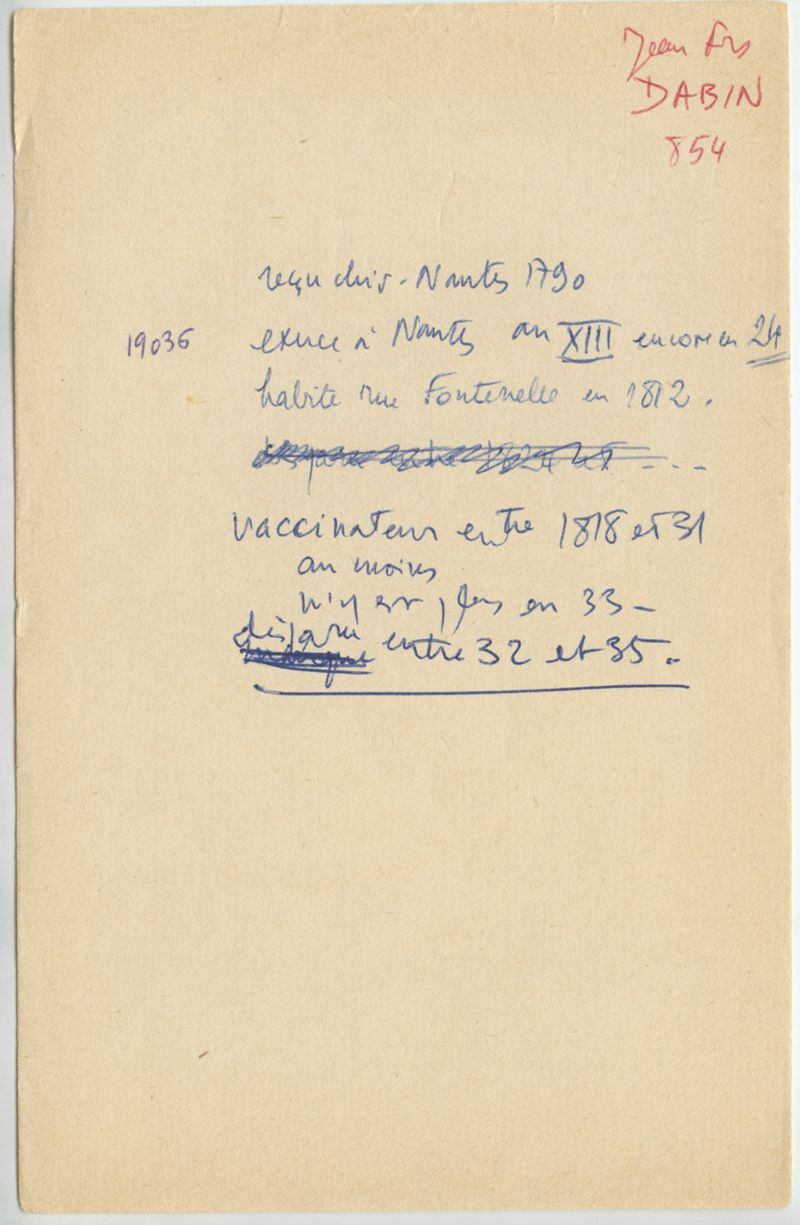 Jean Frs
DABIN
854
reçu chir. Nantes 1790
19036 exerce à Nantes an XIII encore en 24
habite rue Fontenelle en 1812.
vaccinateur entre 1818 et 31
au moins
n'y est plus en 33 -
disparu entre 32 et 35.